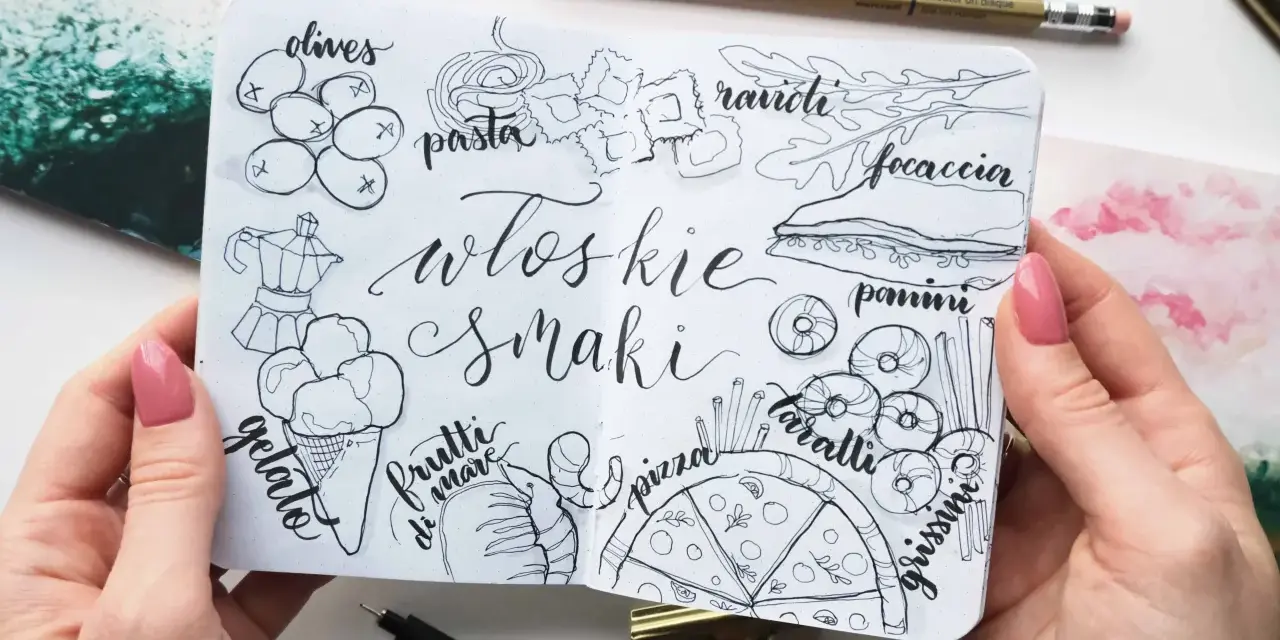 olives
pasta
ravioli
focaccia
włoskie
smaki
panini
gelato
frutti
di mare
pizza
taralli
grissini